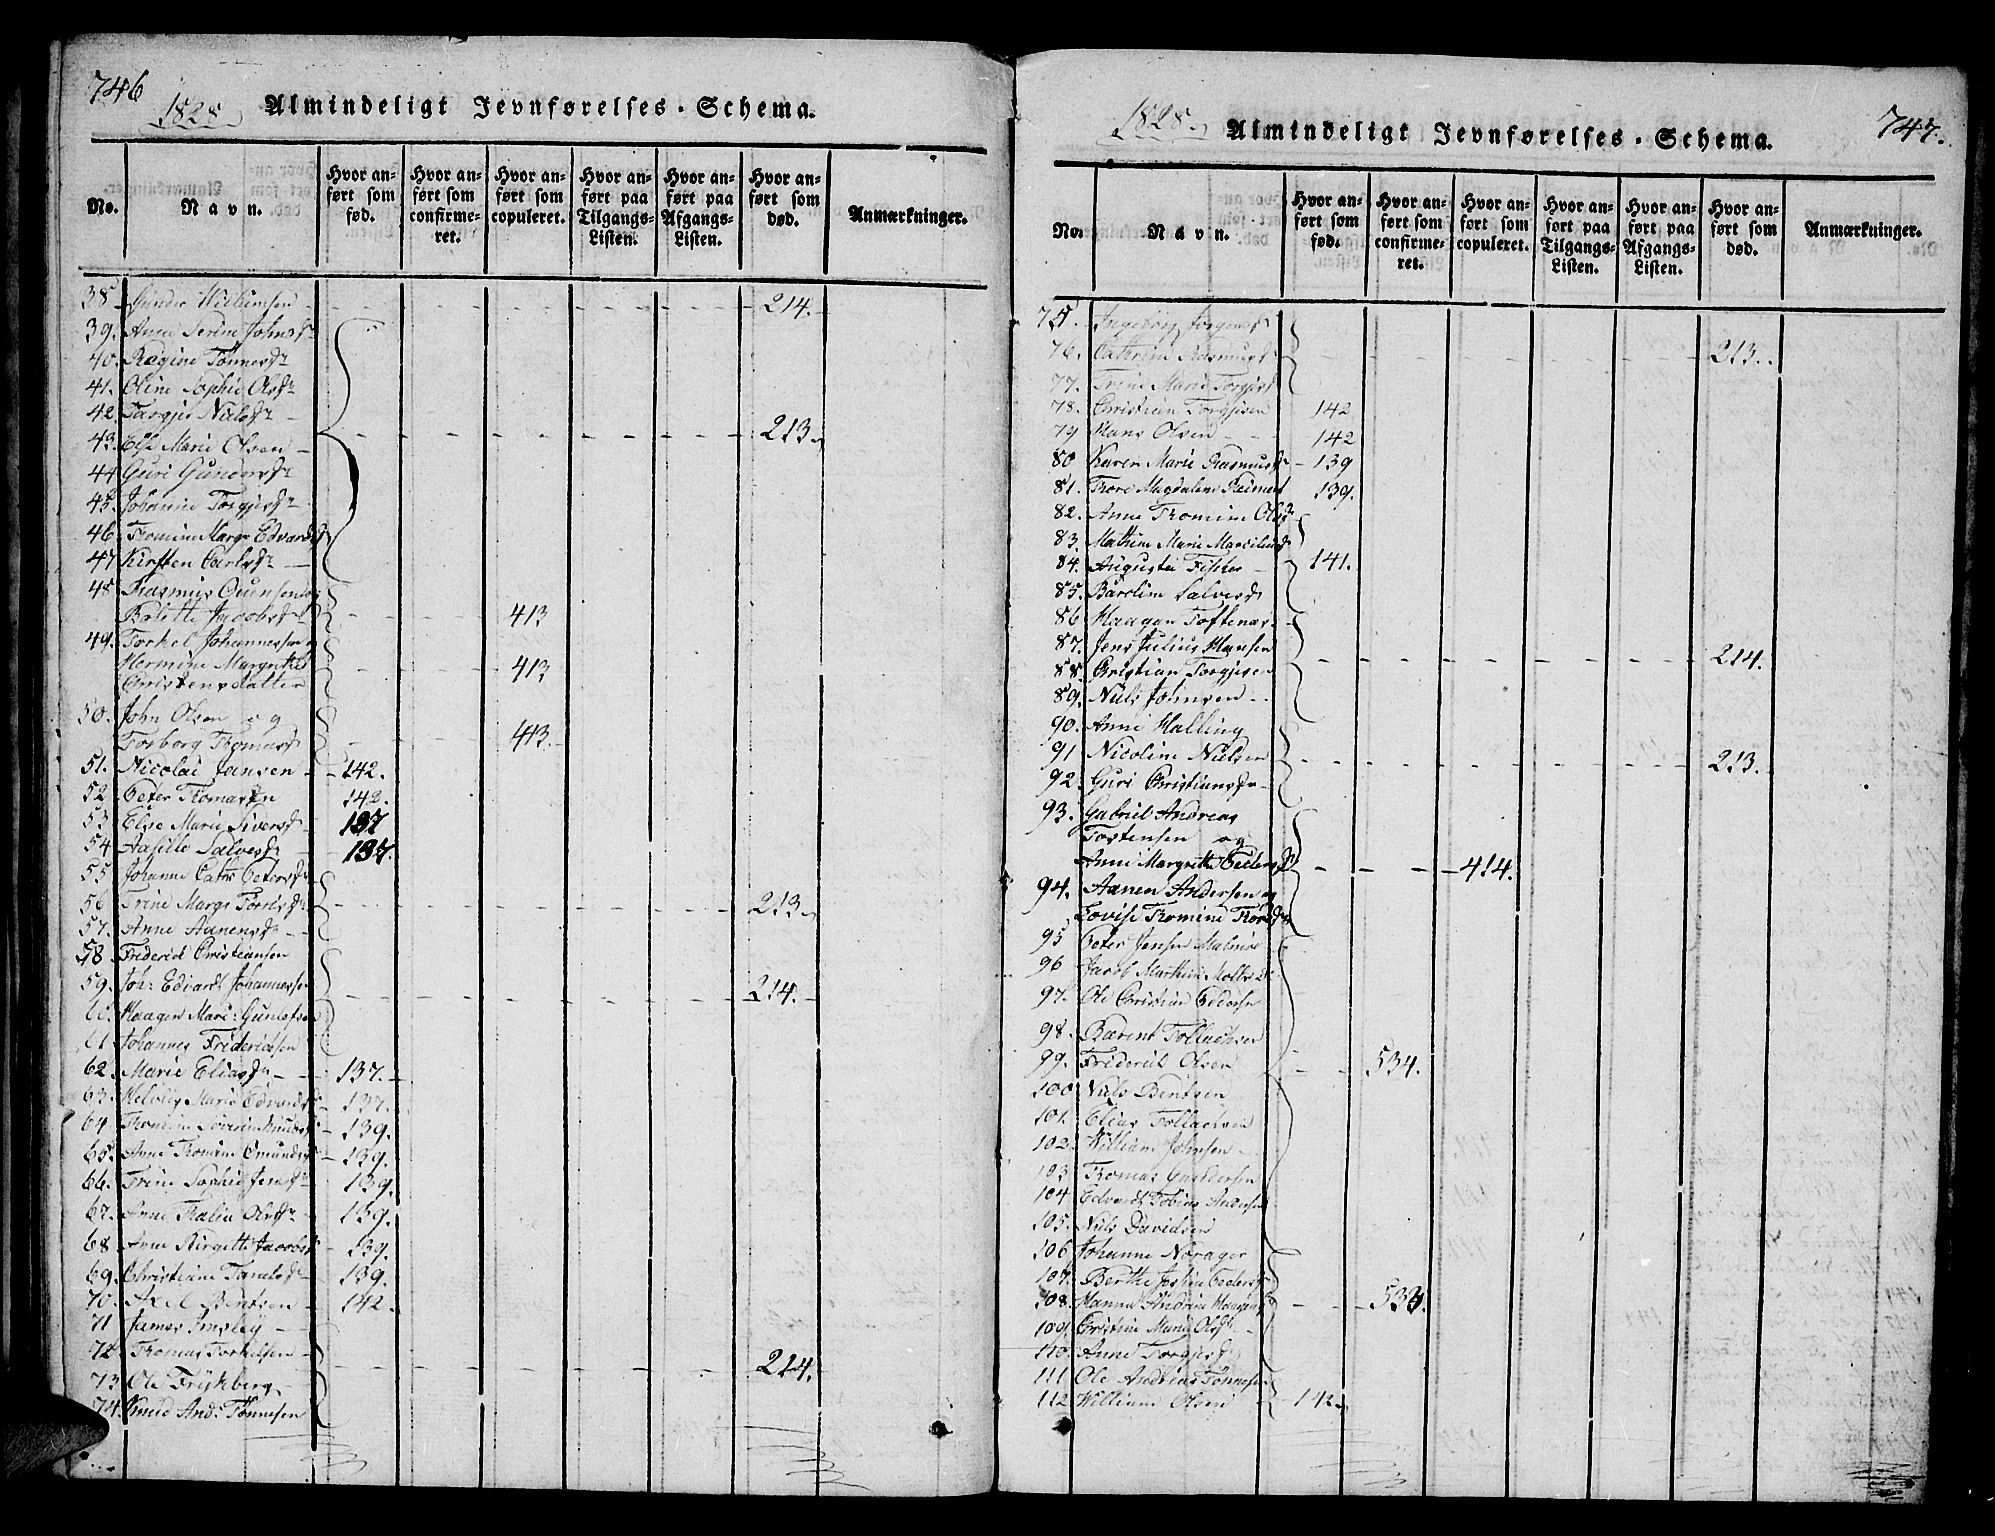 746
1828
Almindeligt Jevnførelses-Schema.
No.
Navn.
Hvor anført som fød.
Hvor anført som confirmeret.
Hvor anført som copuleret.
Hvor anført paa Tilgangs-Listen.
Hvor anført paa Afgangs-Listen.
Hvor anført som død.
Anmærkninger.
38. Gunder Willumsen 214.
39. Anne Serine Johnsdr
40. Ragine Tønnesdr
41. Oline Sophie Olsdr
42. Targjer Nielsdr
43. Else Marie Olsen 213.
44 Guri Gundersdr
45. Johanne Torgjersdr
46. Tromine Margr Edvardsdr
47 Kirsten Carlsdr
48 Rasmus Ounsen og
Bolette Jacobsdr 413
49. Torkel Johannessen og
Hermine Margrethe 413
Christensdatter
50. John Olsen og
Torborg Thomasdr 413.
51. Nicolai Jansen 142.
52. Peter Thomassen 142.
53 Else Marie Siversdr 137
54 Aasille Salvesdr 137.
55 Johanne Cathr Petersdr
56 Trine Margr 213.
57. Anne Aanensdr
58 Friderich Christiansen
59. Joh: Edvardt Johannessen 214.
60. Haagen Mari: Gunlefsen
61 Johannes Friderichsen
62. Marie Eliasdr 137.
63. Helvig Marie Edvardsdr 137.
64 Tromine Severine Knudsdr 139.
65. Anne Tromine Omundsdr 139.
66. Trine Sophie Jensdr 139.
67. Anne Thalia Olsdr 139.
68 Anne Birgitte Jacobsdr 139.
69. Christiane 139.
70. Axel Bentsen 142.
71 James
72 Thomas Torkelsen 214.
73. Ole Frykberg
74. Knud And: Tønnesen
1828.
Almindeligt Jevnførelses-Schema.
747.
No.
Navn.
Hvor anført som fød.
Hvor anført som confirmeret.
Hvor anført som copuleret.
Hvor anført paa Tilgangs-Listen.
Hvor anført paa Afgangs-Listen.
Hvor anført som død.
Anmærkninger.
75. Ingeborg Jørgensdr
76. Cathrine Rasmusdr 213.
77. Trine Marie Torgjersdr
78. Christian Torgjersen 142
79 Hans Olsen 142
80 Karen Marie Rasmusdr 139
81. Thore Magdalene Reimert 139.
82. Anne Tromine Olsdr
83. Mathine Marie
84. Augusta Fischer 141.
85. Baroline Salvesdr
86 Haagen Toftenæs
87. Jens Julius Hansen 214.
88. Christian Torgjersen
89. Niels Johnsen
90. Anne Halling
91 Nicoline Nielsen 213.
92. Guri Christiansdr
93. Gabriel Andreas
Tostensen og
Anne Margrethe Pedersdr 414.
94. Aanen Andersen og
Lovise Tromine
95 Peter Jensen Malmøe
96 Jacob Marthin
97. Ole Christian Peders​en
98. Bærent Tollachsen
99. Friderich Olsen 534.
100 Niels Bentsen
101. Elias Tollachsen
102. William Johnsen
103 Thomas Gundersen
104 Edvardt Tobias Andersen
105. Niels Davidsen
106 Johanne Norager
107. Berthe Josine Pedersdr
108. Hanna Andrine 533.
109. Christine Marie Olsdr
110. Anne Torgjersdr
111 Ole Andreas Tønnesen
112 William Olsen 142.